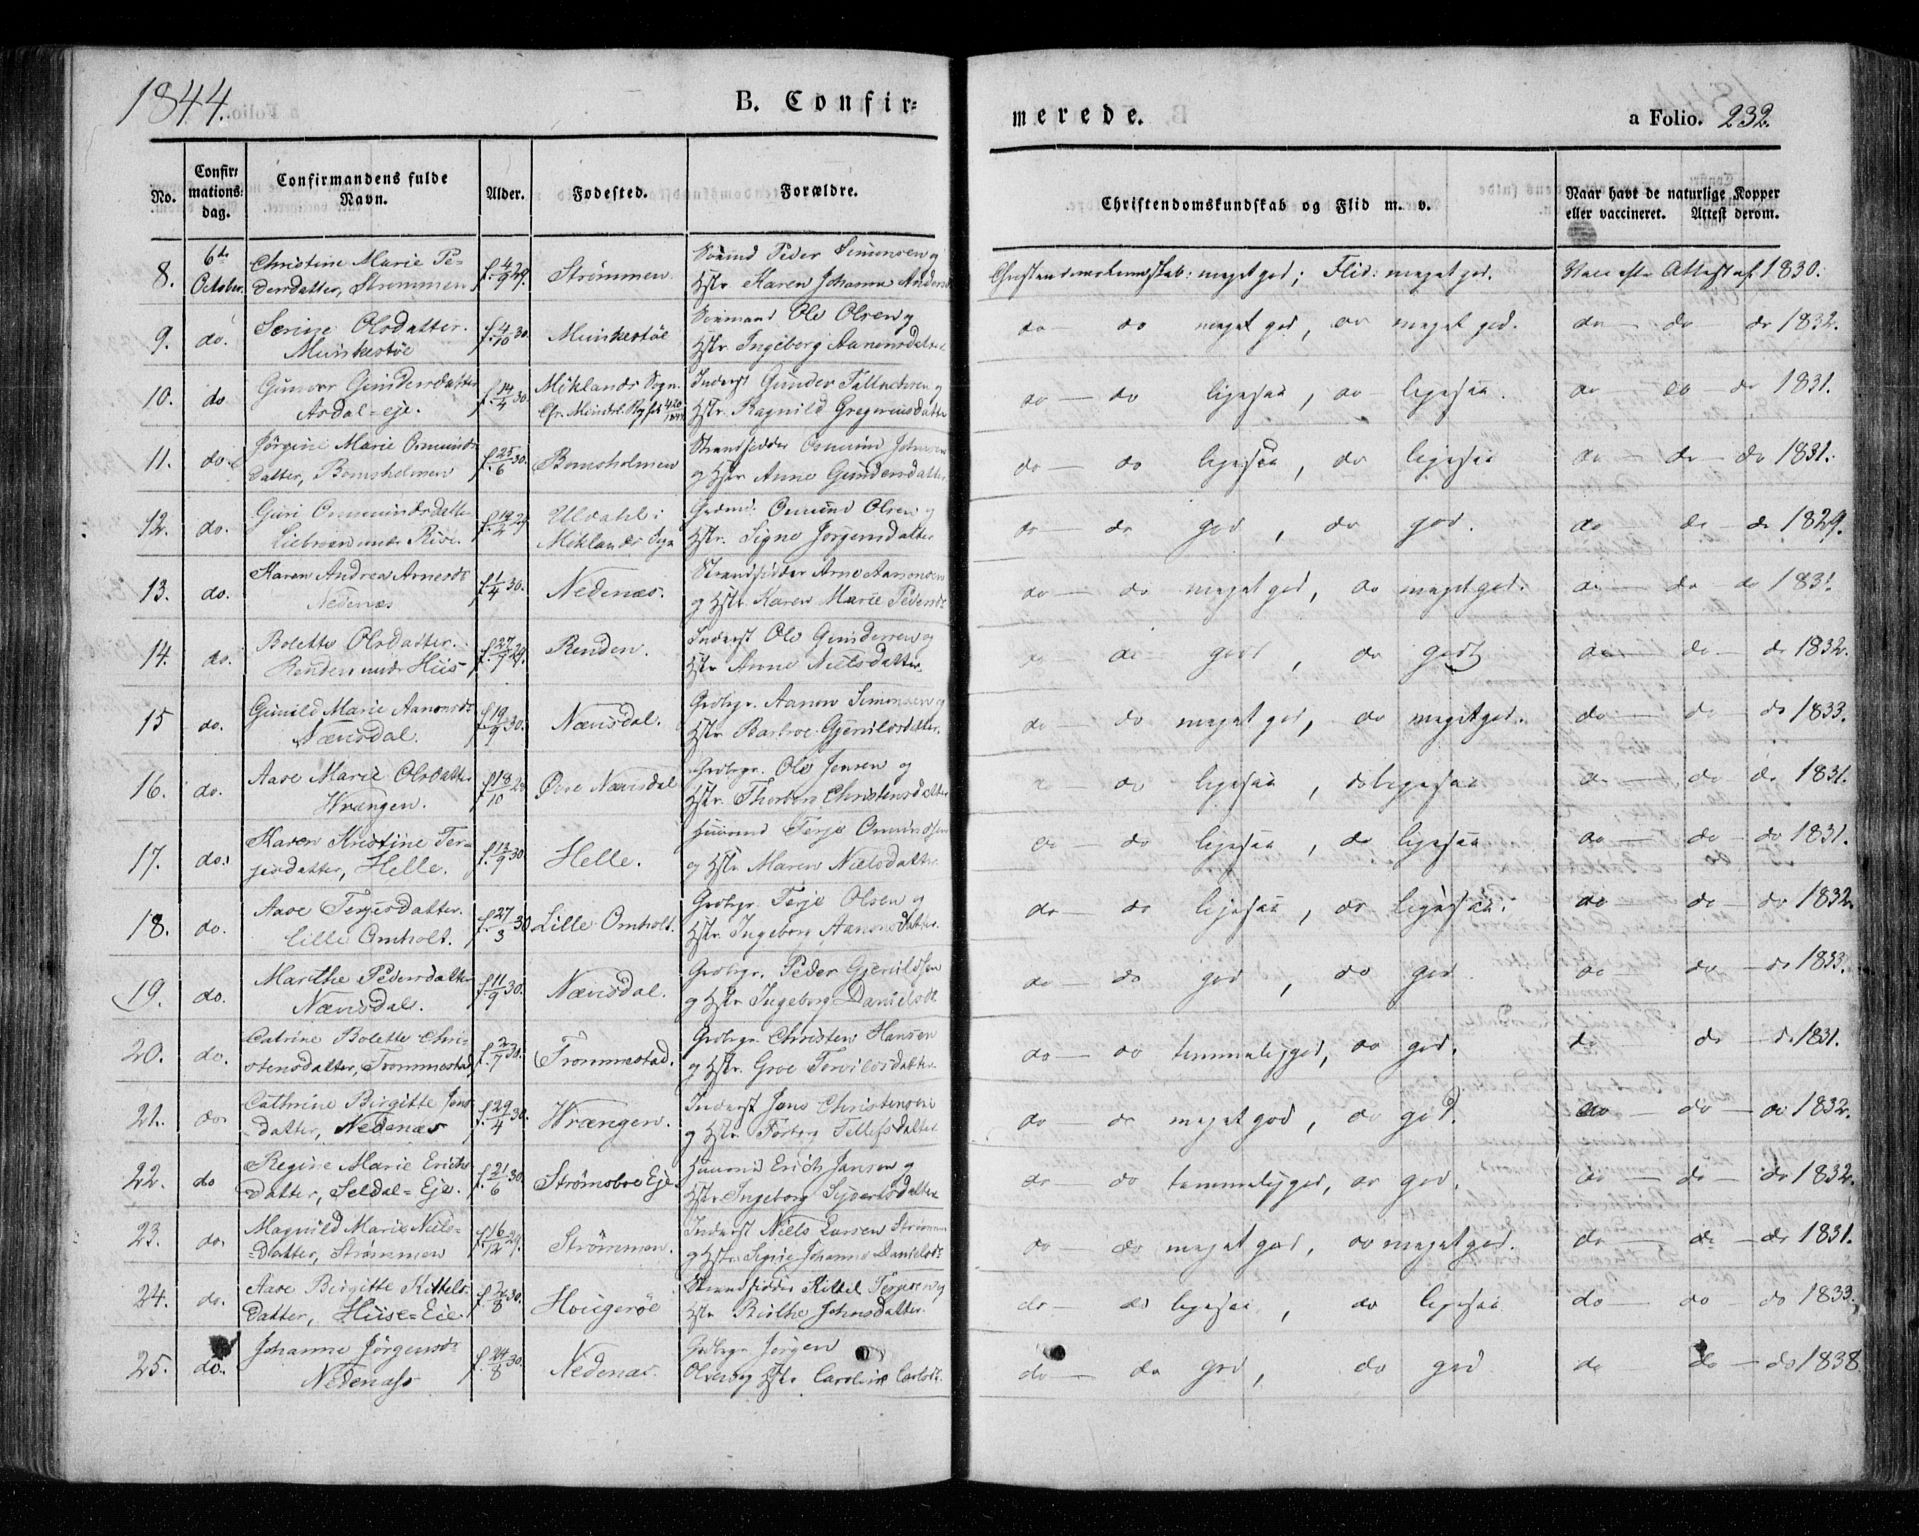 1844.
B. Confir=
merede.
a Folio. 232.
No. Confir= mations= dag. Confirmandens fulde Navn. Alder. Fødested. Forældre. Christendomskundskab og Flid m. v. Naar havt de naturlige Kopper eller vaccineret. Attest derom.
8. 6te October. Christine Marie Pe- f. 4/9 29. Strømmen. Sømnd Peder Simonsen og Christendomskundskab: meget god; Flid: meget god. Vacc. efter Attest af 1830.
dersdatter, Strømmen Hstr. Karen Johanne
9. do. Serine Olsdatter. f. 4/10 30. Munkestøe Sømand Ole Olsen og do — do meget god, do meget god. do — do — do 1832.
Munkestøe Hstr. Ingeborg Aanonsdatter
10. do Gunvor Gundersdatter f. 14/4 30. Møklands Sogn. Inderst Gunder Tallachsen og do — do ligesaa, do ligesaa. do do do 1831.
Ardal=eje. Hstr. Ragnild Gregeriusdatter
11. do Jørgine Marie Osmunds f. 25/6 30. Bomsholmen Strandsidder Osmund Johnsen do — do ligesaa, do ligesaa do — do — do 1831.
datter, Bomsholmen og Hstr. Anne Gundersdatter
12. do. Guri Osmundsdatter f. 19/2 29 Uldahl i Grdmd. Osmund Olsen og do — do god, do god. do do do 1829.
Møklands Sogn Hstr. Signe Jørgensdatter
13. do. Karen Andrea Arnesd: f. 1/4 30. Nedenæs. Strandsidder Arne Aanonsen do — do meget god, do meget god. do — do do 1831
Nedenæs og Hstr. Karen Marie Pedersd:
14. do. Bolette Olsdatter. f. 27/7 29. Renden. Inderst Ole Gundersen og do do godt, do godt do — do — do 1832.
Renden under Hiis Hstr. Anne Nielsdatter.
15 do. Gunild Marie Aanonsd: f. 19/9 30. Næusdal. Grdbgr. Aanon Simonsen og do — do meget god, do meget god. do — do — do 1833.
Næusdal. Hstr. Barbroe Gjerulvsdatter.
16. do. Aase Marie Olsdatter f. 18/10 28 Øvre Næusdal Grdbgr. Ole Jensen og do — do ligesaa, do ligesaa do — do do 1831.
Wrængen. Hstr. Thorborg Christensdatter
17. do. Karen Kristine Ter- f. 13/9 30 Helle. Huusmd Terje Osmundsen do — do ligesaa, do ligesaa do — do — do 1831.
jesdatter, Helle. og Hstr. Maren Nielsdatter.
18. do. Aase Terjesdatter. f. 27/3 30 Lille Omholt. Grdbgr. Terje Olsen og do — do ligesaa, do ligesaa. do — do — do 1832.
Lille Omholt. Hstr. Ingeborg Aanonsdatter.
19. do. Marthe Pedersdatter f. 11/9 30. Næusdal. Grdbgr. Peder Gjerulvsen do — do god, do god. do — do — do 1833.
Næusdal. og Hstr. Ingeborg Danielsd:
20. do. Catrine Bolette Chri- f. 2/7 30. Trommestad. Grdbgr. Christen Hansen do — do temmelig god, do god. do do — do 1831.
stensdatter, Trommestad og Hstr. Groe Torvilsdatter.
21. do. Cathrine Birgitte Jens f. 29/4 30. Wrængen. Inderst Jens Christensen do do meget god, do god. do — do — do 1832.
datter, Nedenæs og Hstr. Torborg Tellefsdatter
22. do Regine Marie Erichs f. 21/6 30. Strømsboe Eje. Huusmd Erich Jansen og do — do temmelig god, do god. do — do — do 1832.
datter, Seldal=Eje. Hstr. Ingeborg
23. do. Magnild Marie Niels= f. 16/12 29. Strømmen. Inderst Niels Larsen Strømmen do — do meget god, do meget god. do — do — do 1831.
datter, Strømmen og Hstr. Signe Johanne Danielsd:
24. do. Aase Birgitte Kittels f. 2/8 30. Hougerøe Strandsidder Kittel Terjesen og do — do ligesaa, do ligesaa do — do — do 1833.
datter, Hiise=Eie Hstr. Birthe Johnsdatter.
25. do. Johanne Jørgensd: f. 24/8 30. Nedenæs. Grdbgr. Jørgen do — do god, do god do do — do 1838
Nedenæss Olsen og Hstr. Caroline Carlsd: